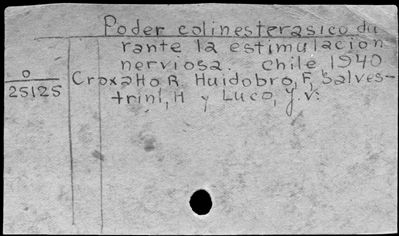 Poder colinesterasico du
rante la estimulacion
nerviosa. Chile, 1940
O
25125
Croxatto R. Huidobro, F, Salves-
trini, H y Luco, J.V.